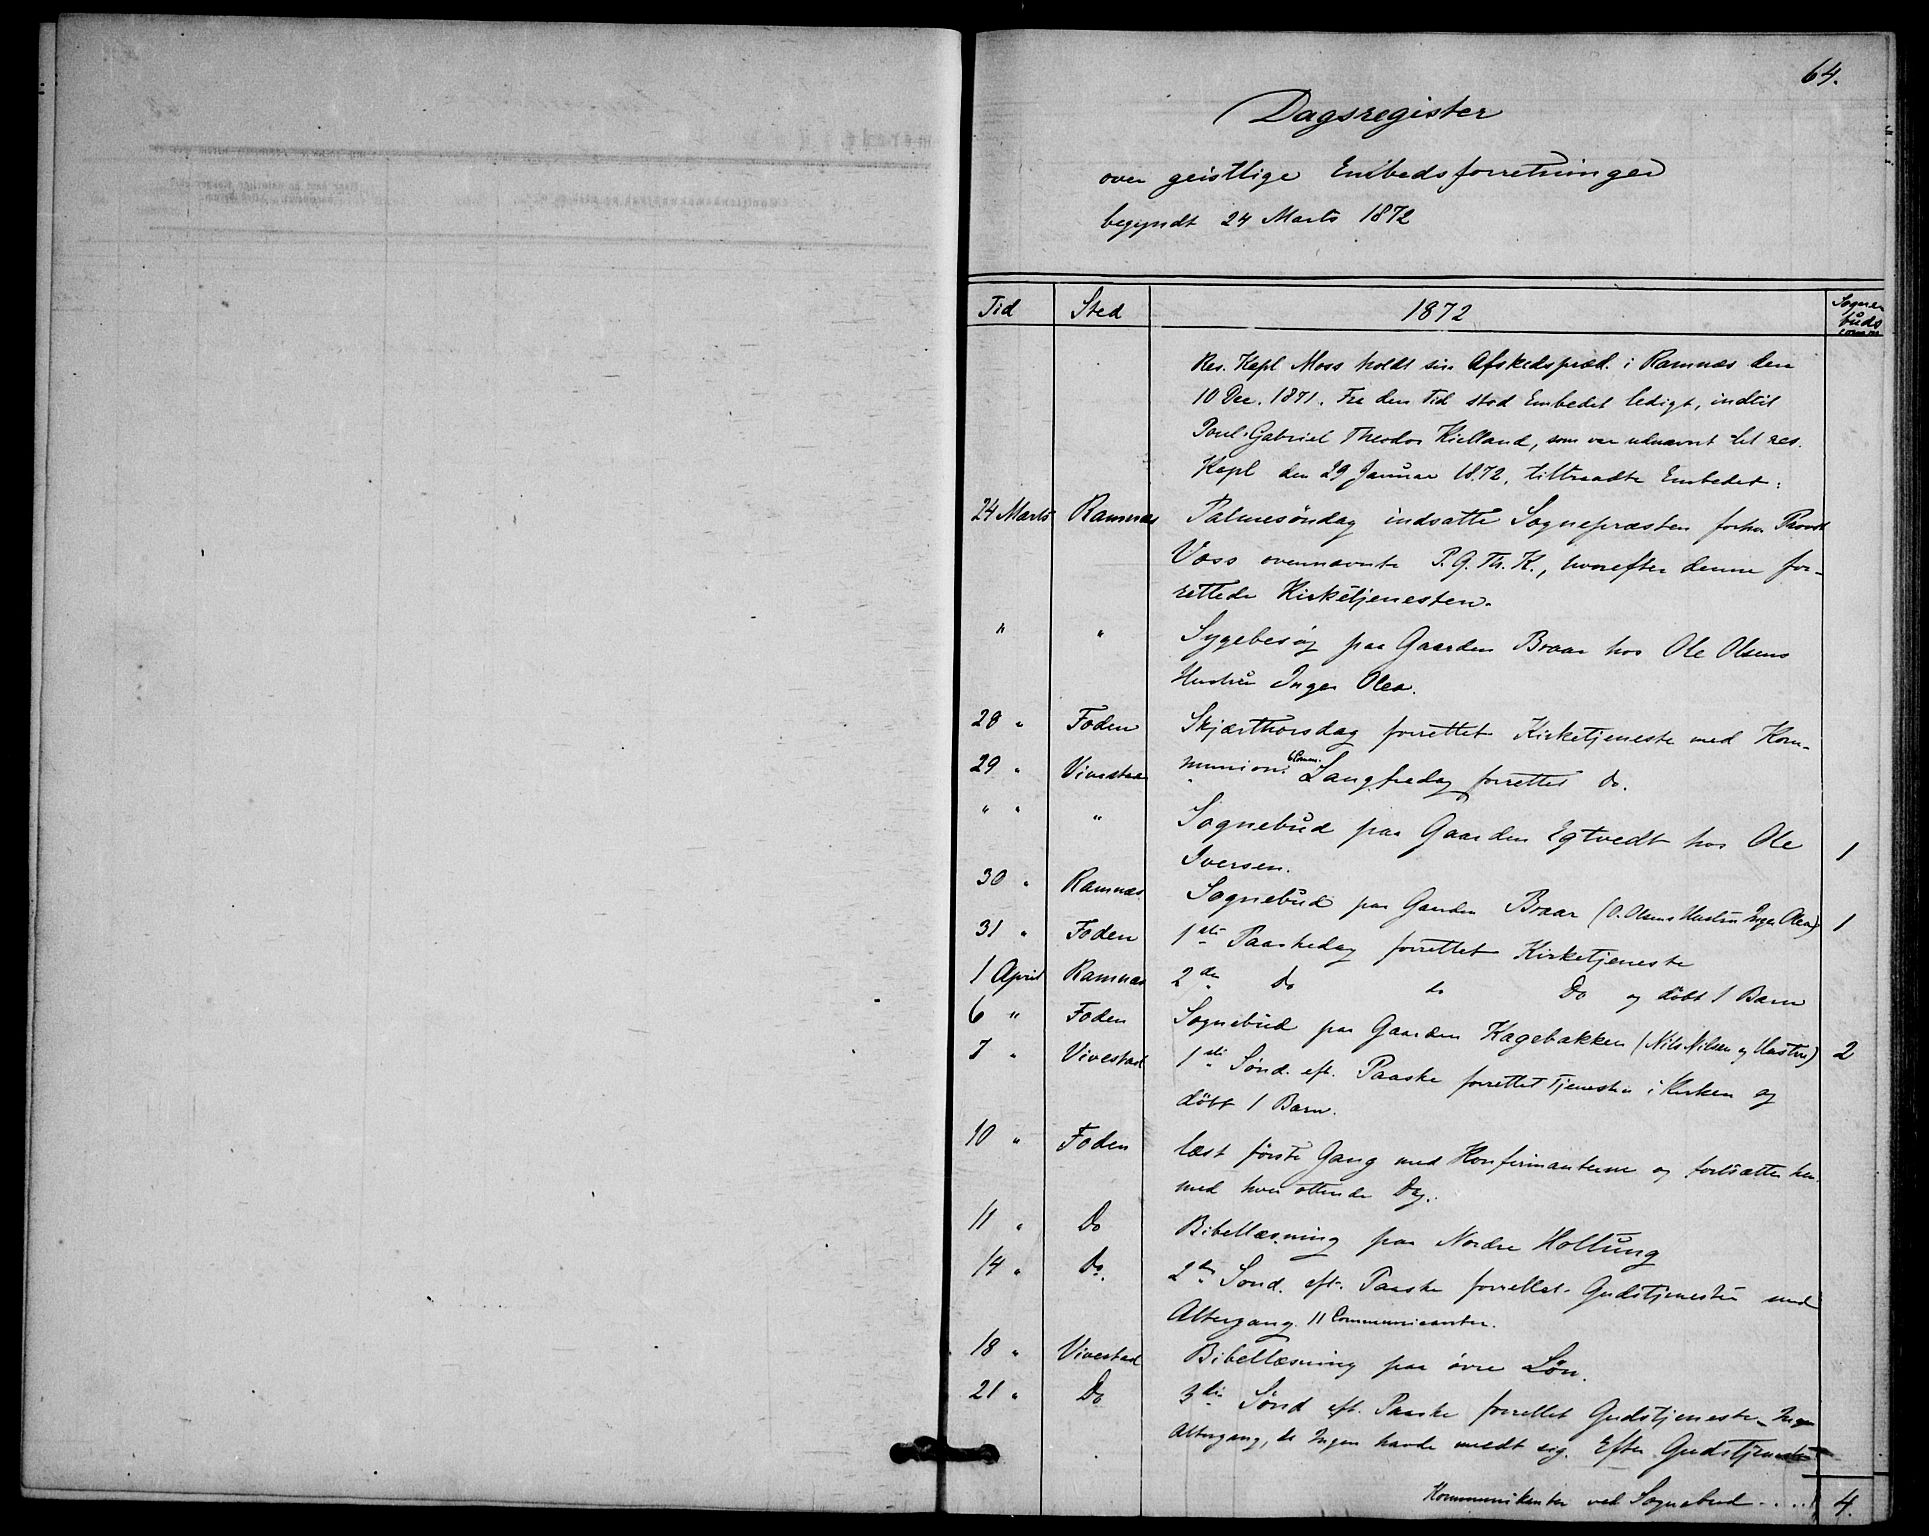 64.
Dagsregister
over geistlige Embedsforretninger
begyndt 24 Marts 1872
Tid Sted 1872 Sognebuds
Res. Kapl Moss holdt sin Afskedspræd. i Ramnæs den
10 Dec. 1871. Fra den Tid stod Embedet ledigt, indtil
Poul Gabriel Theodor Kielland, som var udnævnt til res.
Kapl den 29 Januar 1872, tiltraadte Embedet:
24 Marts Ramnæs Palmesøndag indsatte Sognepræsten forhv. Provst
Voss ovennævnte P. G. Th. K., hvorefter denne for-
rettede Kirketjenesten.
" " Sygebesøg paa Gaarden Braar hos Ole Olsens
Hustru Inger Olea.
28 " Foden Skjærthorsdag forrettet Kirketjeneste med Kom-
29 " Vivestad munion. Langfredag forrettet Do.
" " " Sognebud paa Gaarden Egtvedt hos Ole 1
Iversen.
30 " Ramnæs Sognebud paa Gaarden Braar (O. Olsens Hustru Inger Olea) 1
31 " Foden 1ste Paaskedag forrettet Kirketjeneste
1 April Ramnæs 2den Do to Do og døbt 1 Barn
6 " Foden Sognebud paa Gaarden Kagebakken (Nils Nilsen og Hustru) 2
7 " Vivestad 1ste Sønd. eft. Paaske forrettet Tjenesten i Kirken og
døbt 1 Barn.
10 " Foden læst første Gang med Konfirmanterne og fortsættes her-
med hver ottende Dag.
11 " Do Bibellæsning paa Nordre Holtung
14 " Do. 2den Sønd. eft. Paaske forrettet Gudstjenesten med
Altergang. 11 Communicanter.
18 " Vivestad Bibellæsning paa øvre Løn.
21 " Do 3die Sønd eft. Paaske forrettet Gudstjeneste. Ingen
Altergang, da Ingen havde meldt sig. Efter Gudstjenesten
Kommunikanter ved Sognebud .... 4.